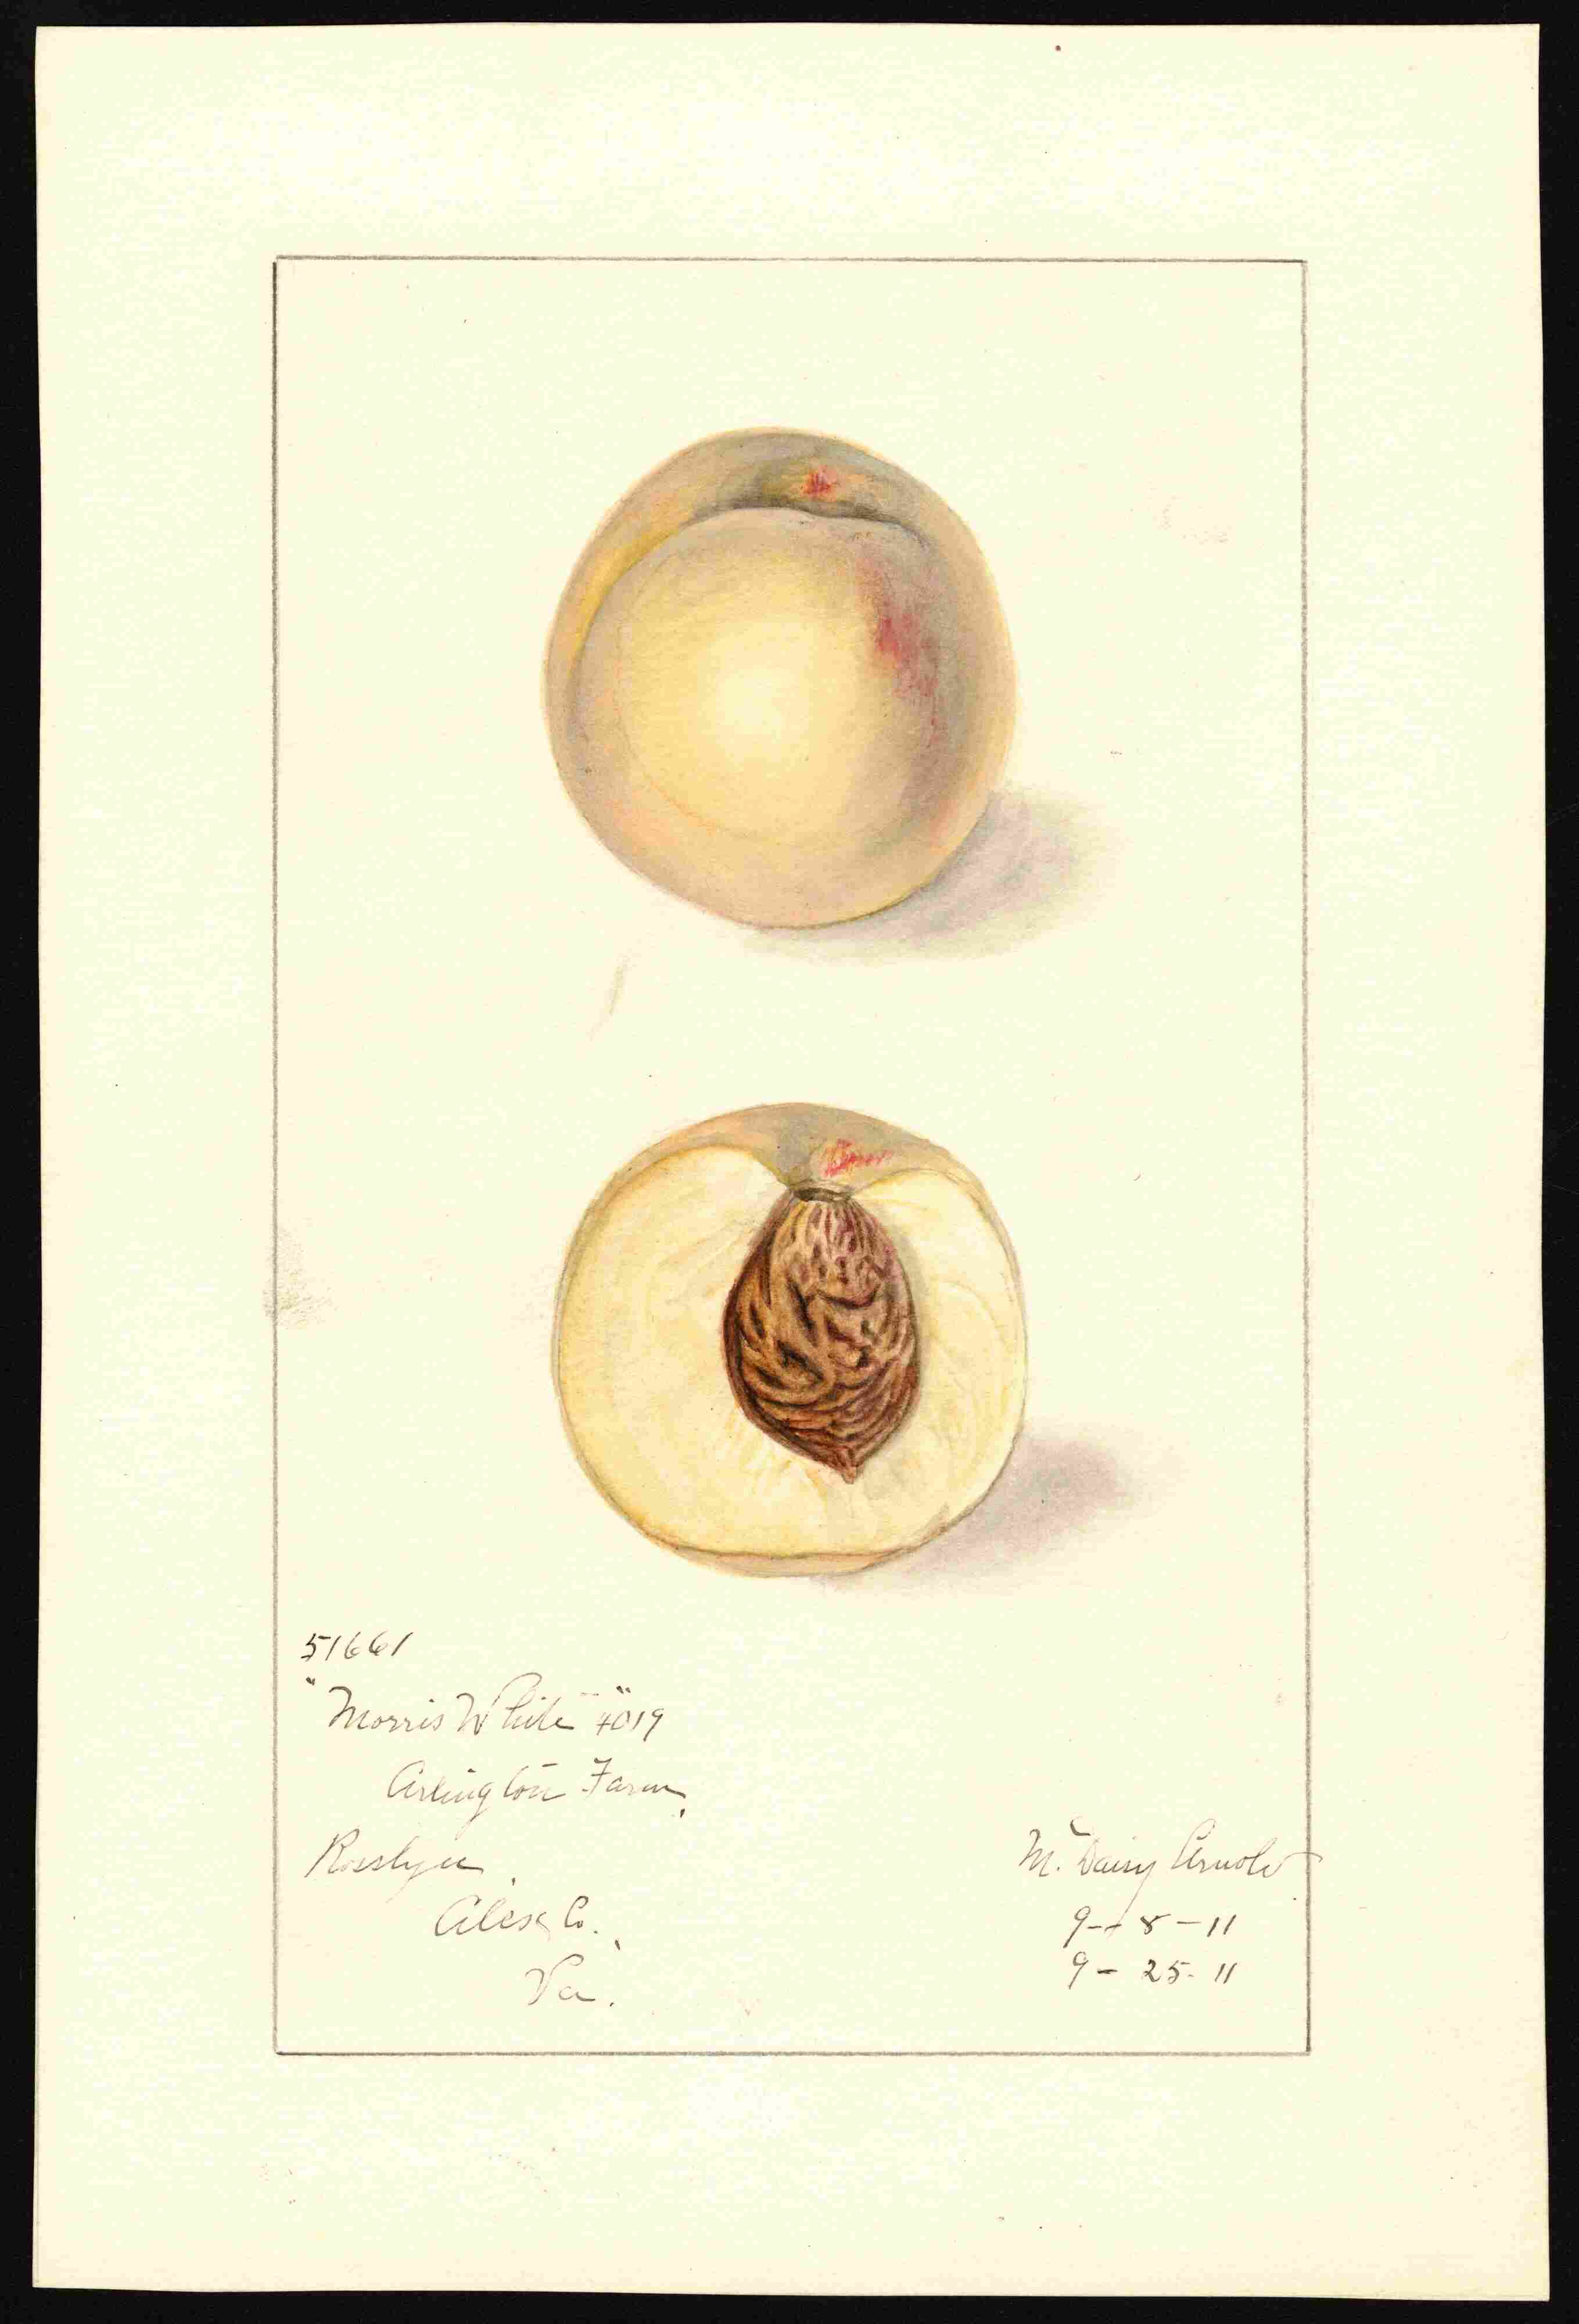 51661
"Morris White" #019
Arlington Farm,
Rosslyn,
Alex. Co.,
Va.
M. Daisy Arnold
9-8-11
9-25-11